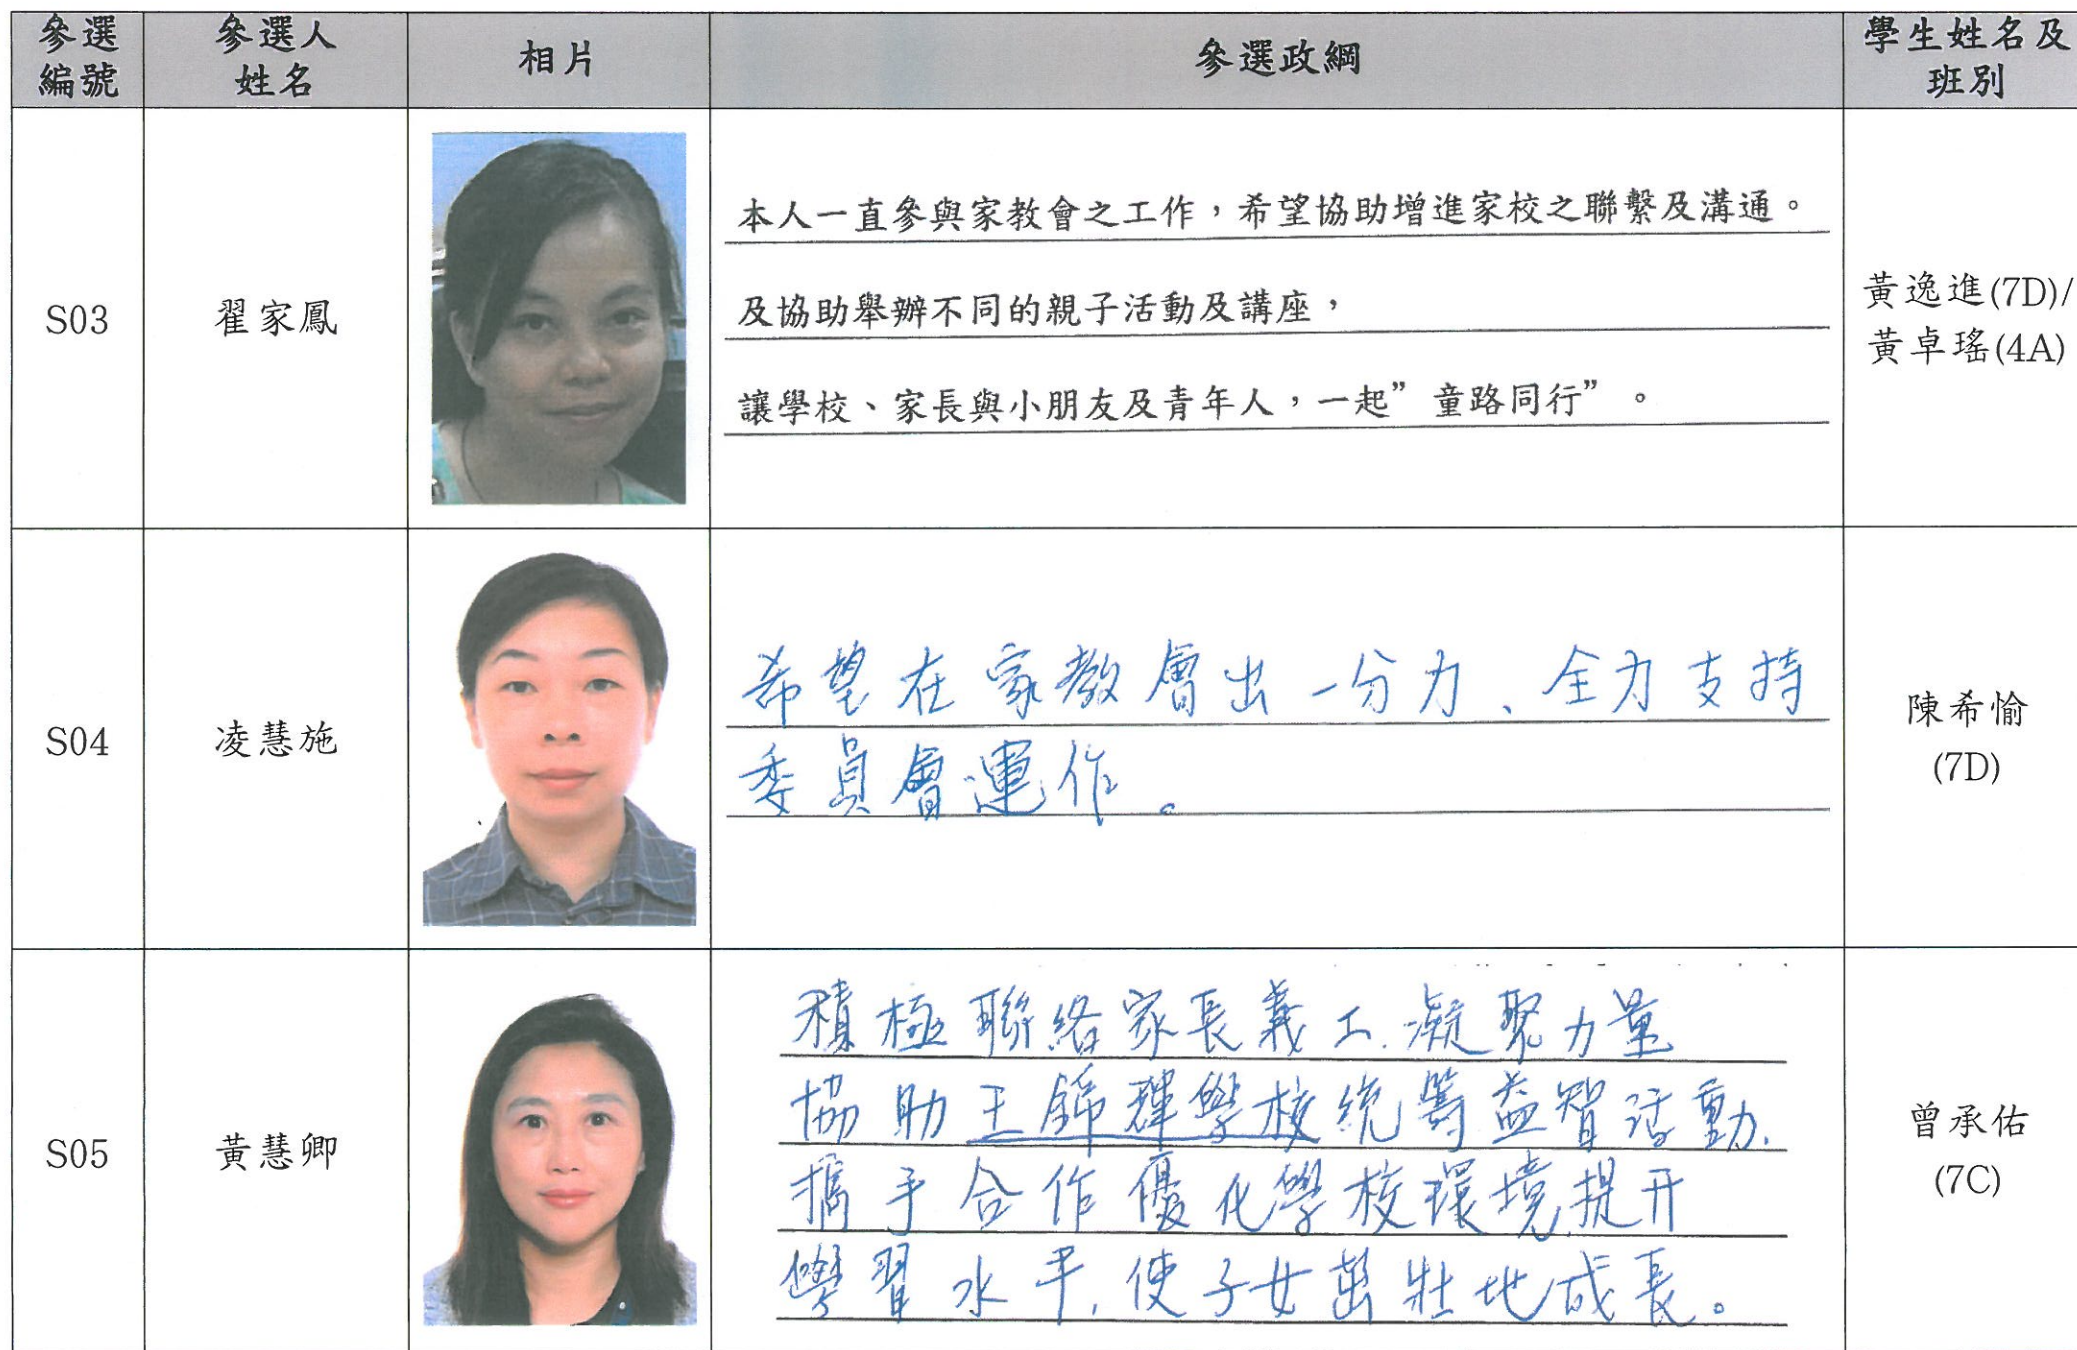 參選編號 參選人姓名 相片 參選政綱 學生姓名及班別
S03 翟家鳳
本人一直參與家教會之工作，希望協助增進家校之聯繫及溝通。
及協助舉辦不同的親子活動及講座，
讓學校、家長與小朋友及青年人，一起”童路同行”。
黃逸進(7D)/
黃卓瑤(4A)
S04 凌慧施
希望在家教會出一分力、全力支持
委員會運作。
陳希愉
(7D)
S05 黃慧卿
積極聯絡家長義工.凝聚力量
協助王錦輝學校統籌益智活動.
攜手合作優化學校環境,提升
學習水平,使子女茁壯地成長。
曾承佑
(7C)